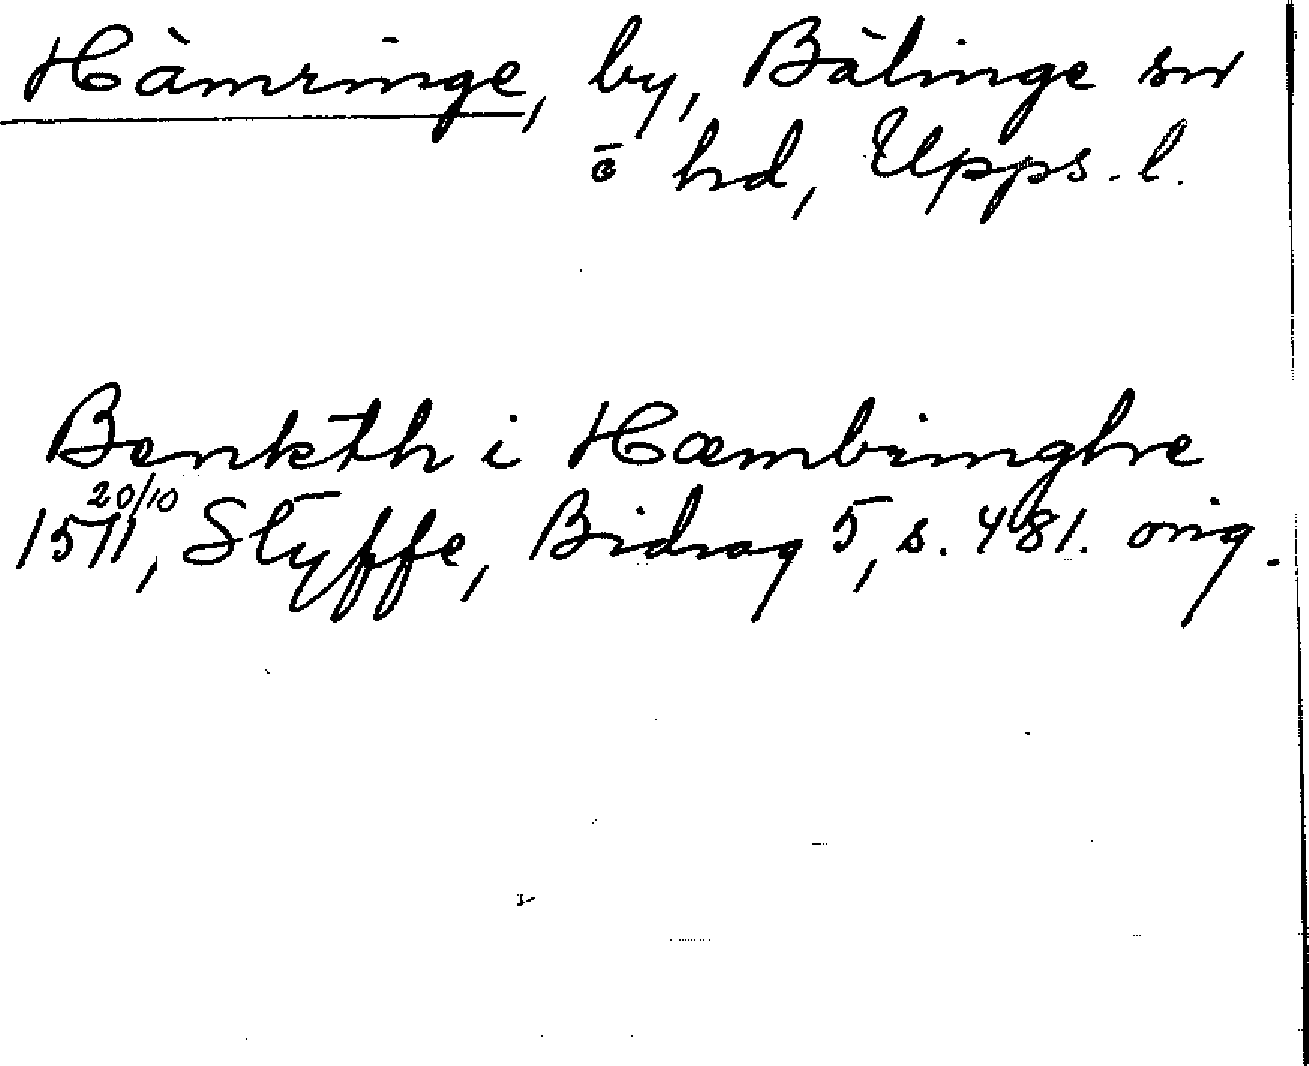 Hämringe, by, Bälinge sn
o hd, Upps. l.
Benkth i Hæmbringhe
20/10
1511, Styffe, Bidrag 5, s. 481. orig.